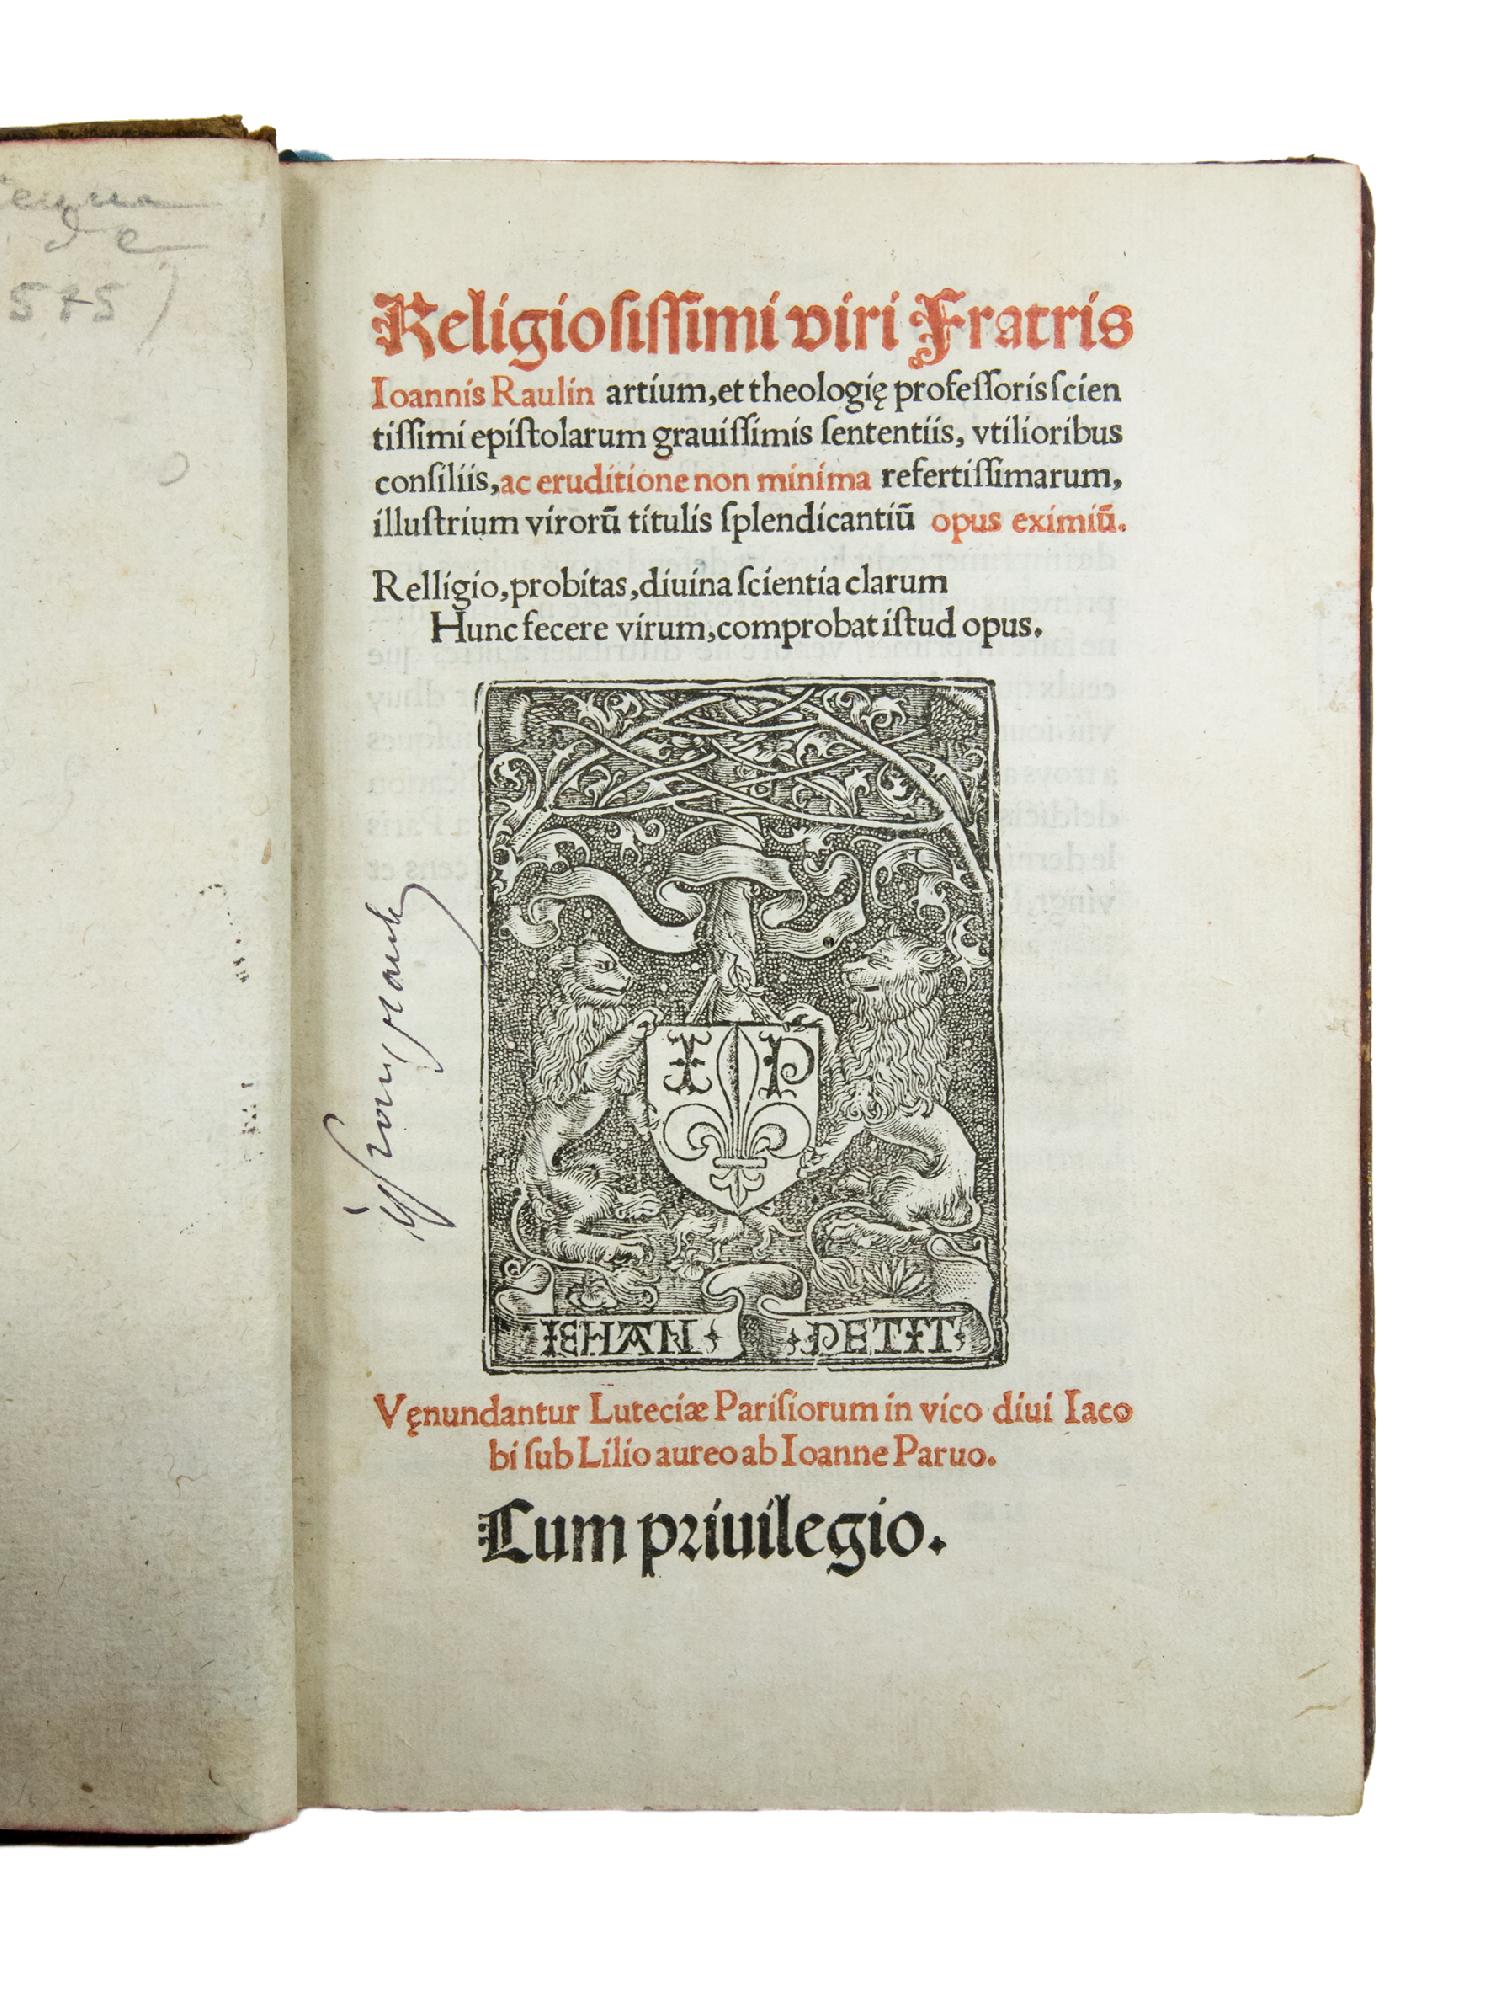 de
575)
Religiosissimi viri Fratris
Ioannis Raulin artium, et theologię professoris scien
tissimi epistolarum grauissimis sententiis, vtilioribus
consiliis, ac eruditione non minima refertissimarum,
illustrium virorũ titulis splendicantiũ opus eximiũ.
Relligio, probitas, diuina scientia clarum
Hunc fecere virum, comprobat istud opus.
I P
IEHAN PETIT
Vęnundantur Luteciæ Parisiorum in vico diui Iaco
bi sub Lilio aureo ab Ioanne Paruo.
Cum priuilegio.